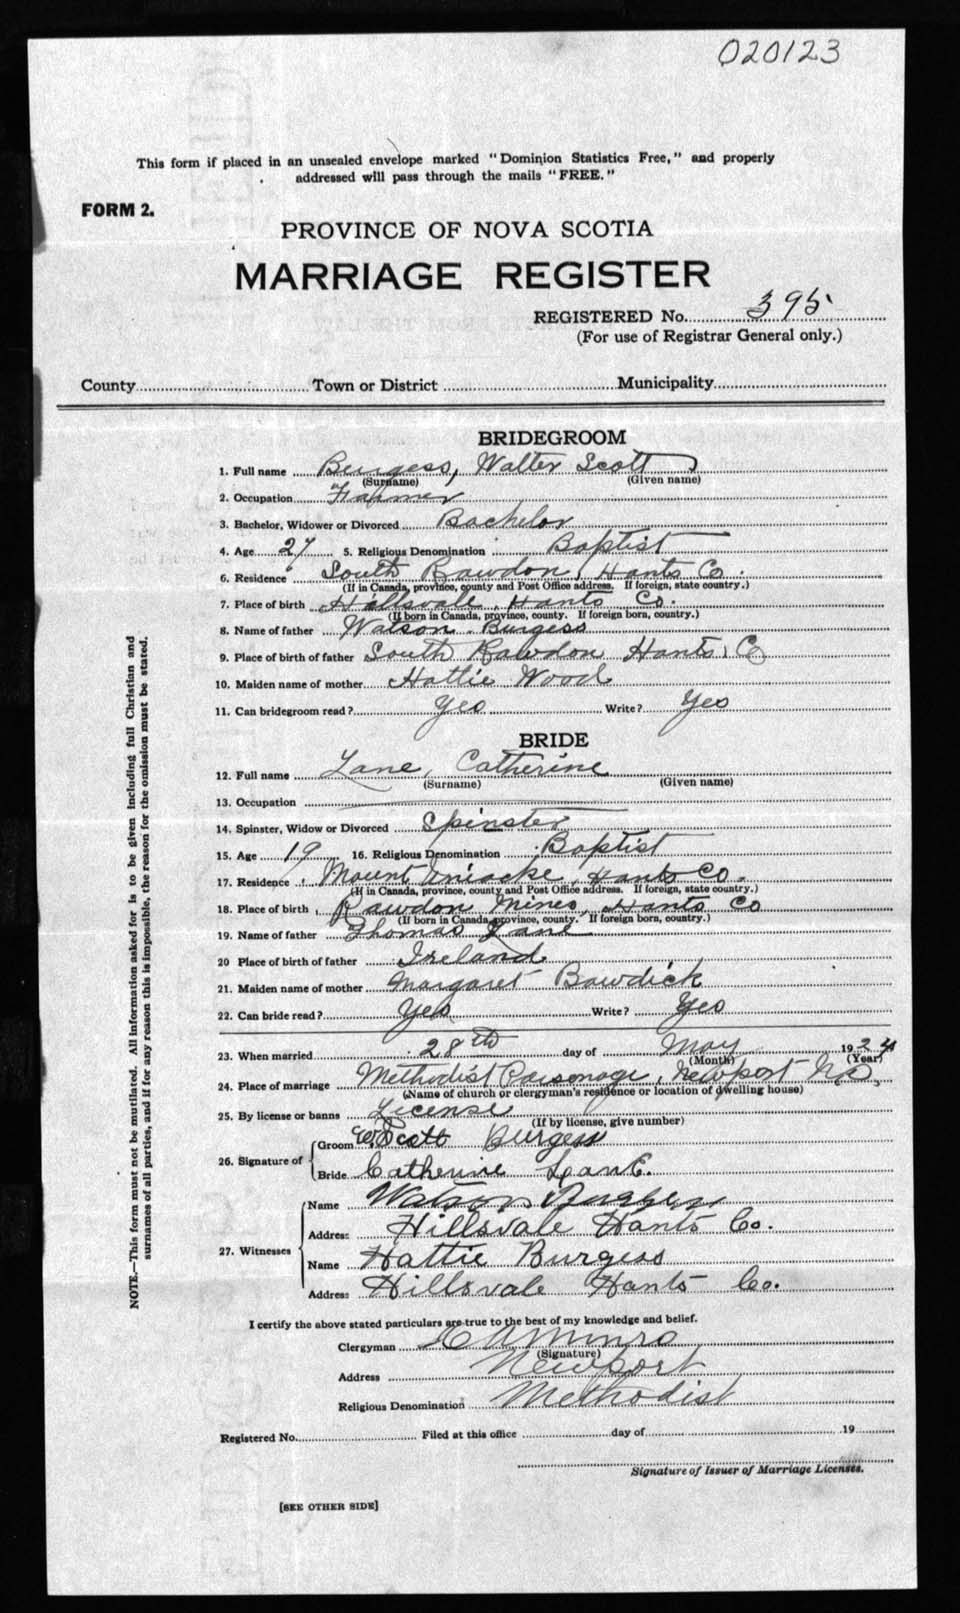 020123
This form if placed in an unsealed envelope marked "Dominion Statistics Free," and properly
addressed will pass through the mails "FREE."
FORM 2.
PROVINCE OF NOVA SCOTIA
MARRIAGE REGISTER
REGISTERED No. 395
(For use of Registrar General only.)
County Town or District Municipality
BRIDEGROOM
1. Full name Burgess, Walter Scott
(Surname) (Given name)
2. Occupation Farmer
3. Bachelor, Widower or Divorced Bachelor
4. Age 27 5. Religious Denomination Baptist
6. Residence South Rawdon, Hants Co.
(If in Canada, province, county and Post Office address. If foreign, state country.)
7. Place of birth Hillsvale, Hants Co.
(If born in Canada, province, county. If foreign born, country.)
8. Name of father Watson Burgess
9. Place of birth of father South Rawdon Hants, Co
10. Maiden name of mother Hattie Wood
11. Can bridegroom read? Yes Write? Yes
BRIDE
12. Full name Lane, Catherine
(Surname) (Given name)
13. Occupation
14. Spinster, Widow or Divorced Spinster
15. Age 19 16. Religious Denomination Baptist
17. Residence Mount Uniacke, Hants Co.
(If in Canada, province, county and Post Office address. If foreign, state country.)
18. Place of birth Rawdon Mines, Hants Co
(If born in Canada, province, county. If foreign born, country.)
19. Name of father Thomas Lane
20 Place of birth of father Ireland
21. Maiden name of mother Margaret Bowdick
22. Can bride read? Yes Write? Yes
23. When married 28th day of May 1924
(Month) (Year)
24. Place of marriage Methodist Parsonage, Newport N.S.
(Name of church or clergyman's residence or location of dwelling house)
25. By license or banns License
(If by license, give number)
26. Signature of
Groom W. Scott Burgess
Bride Catherine Lane.
27. Witnesses
Name Watson Burgess
Address Hillsvale Hants Co.
Name Hattie Burgess
Address Hillsvale Hants Co.
I certify the above stated particulars are true to the best of my knowledge and belief.
Clergyman Munro
(Signature)
Address Newport
Religious Denomination Methodist
Registered No. Filed at this office day of 19
Signature of Issuer of Marriage Licenses.
[SEE OTHER SIDE]
NOTE.—This form must not be mutilated. All information asked for is to be given including full Christian and
surnames of all parties, and if for any reason this is impossible, the reason for the omission must be stated.